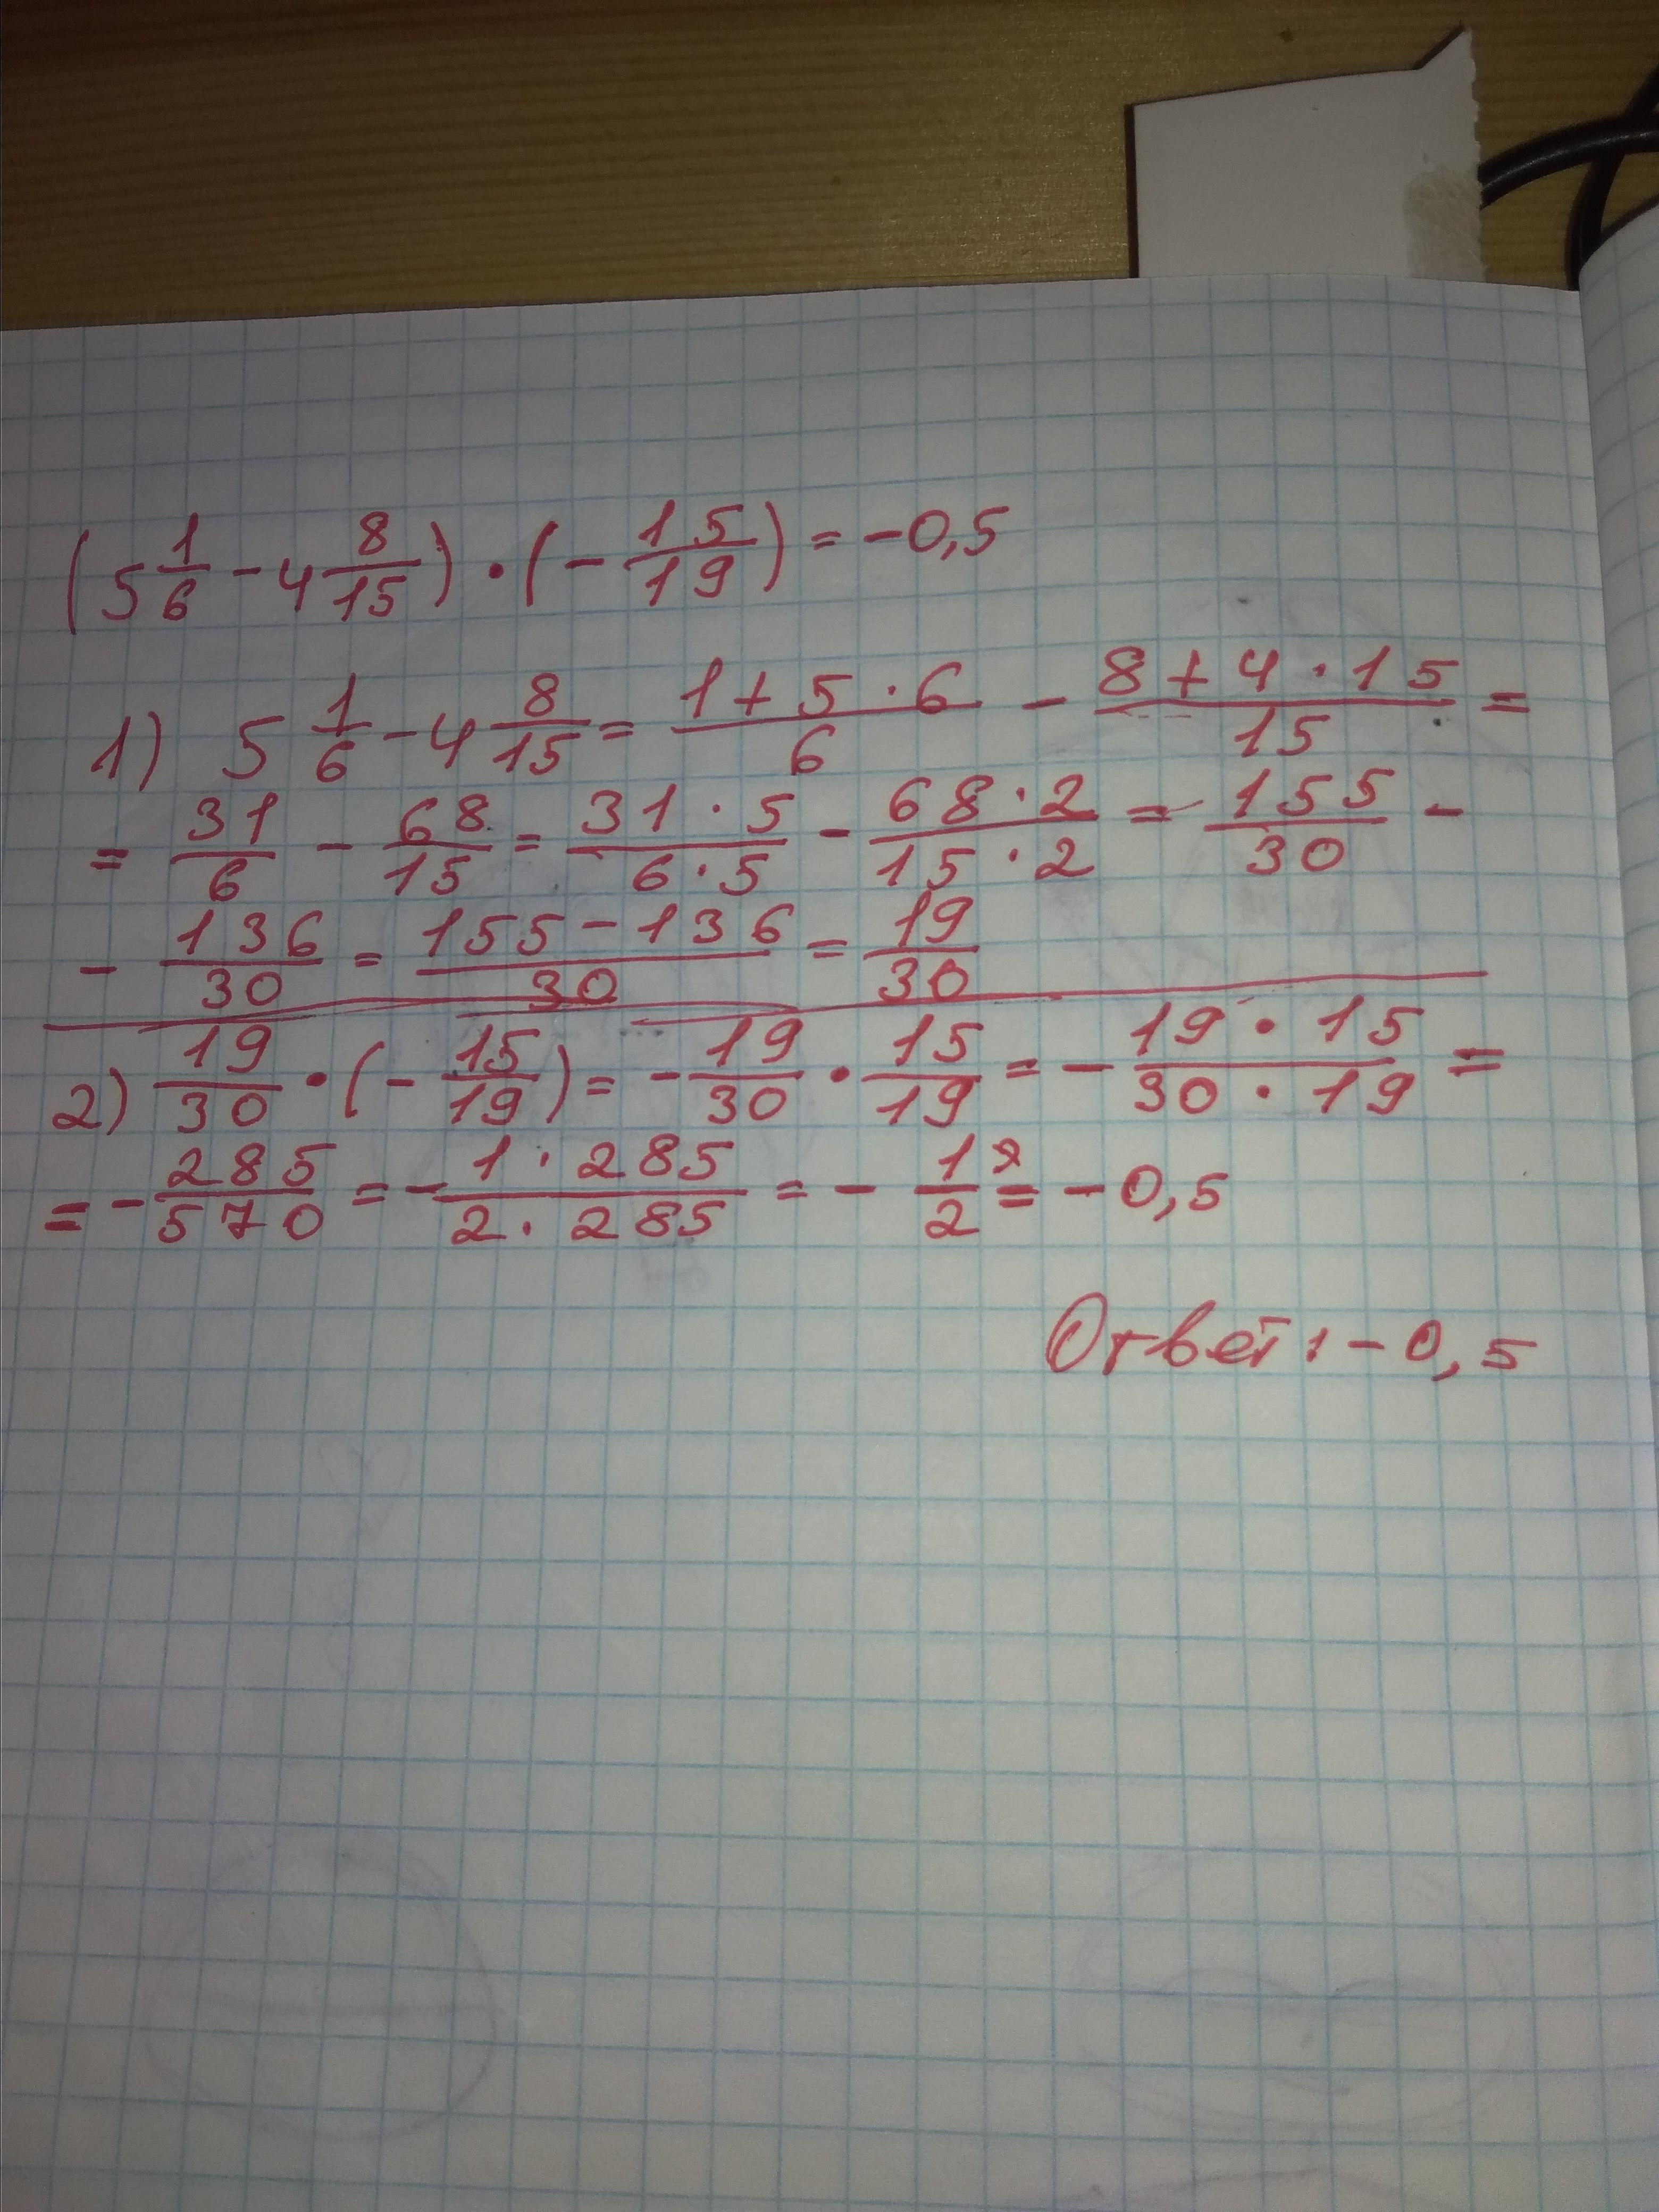 (5 1/6 - 4 8/15) · (- 15/19) = -0,5
1) 5 1/6 - 4 8/15 = (1 + 5 · 6)/6 - (8 + 4 · 15)/15 =
= 31/6 - 68/15 = (31 · 5)/(6 · 5) - (68 · 2)/(15 · 2) = 155/30 -
- 136/30 = (155 - 136)/30 = 19/30
2) 19/30 · (- 15/19) = - 19/30 · 15/19 = - (19 · 15)/(30 · 19) =
= - 285/570 = - (1 · 285)/(2 · 285) = - 1/2 = - 0,5
Ответ: - 0,5